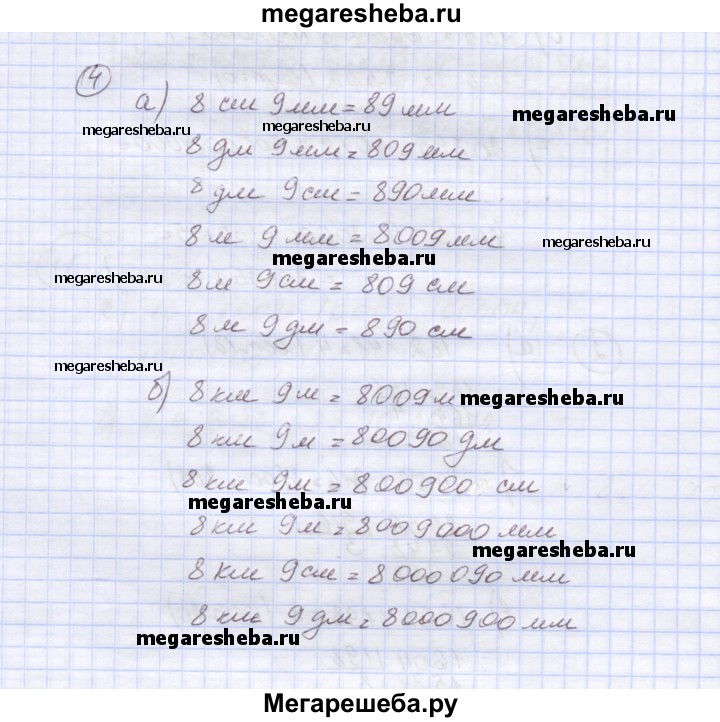 megaresheba.ru
4
а) 8 см 9мм = 89 мм
megaresheba.ru megaresheba.ru megaresheba.ru
8 дм 9мм = 809 мм
8 дм 9см = 890мм
8 м 9 мм = 8009 мм
megaresheba.ru
megaresheba.ru
megaresheba.ru
8м 9см = 809 см
8 м 9 дм = 890 см
megaresheba.ru
б) 8 км 9м = 8009м
megaresheba.ru
8 км 9м = 80090 дм
8 км 9м = 800900 см
megaresheba.ru
8 км 9м = 8009000 мм
megaresheba.ru
8 км 9см = 8000090 мм
8 км 9 дм = 8000900 мм
megaresheba.ru
Мегарешеба.ру